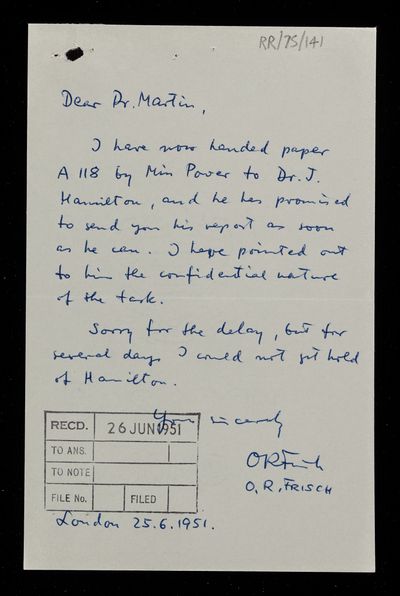 RR/75/141
Dear Dr. Martin,
I have now handed paper
A 118 by Miss Power to Dr. J.
Hamilton, and he has promised
to send you his report as soon
as he can. I have pointed out
to him the confidential nature
of the task.
Sorry for the delay, but for
several days I could not get hold
of Hamilton.
Yours sincerely
ORFrisch
O. R. FRISCH
RECD. 26 JUN 1951
TO ANS.
TO NOTE
FILE No. FILED
London 25.6.1951.